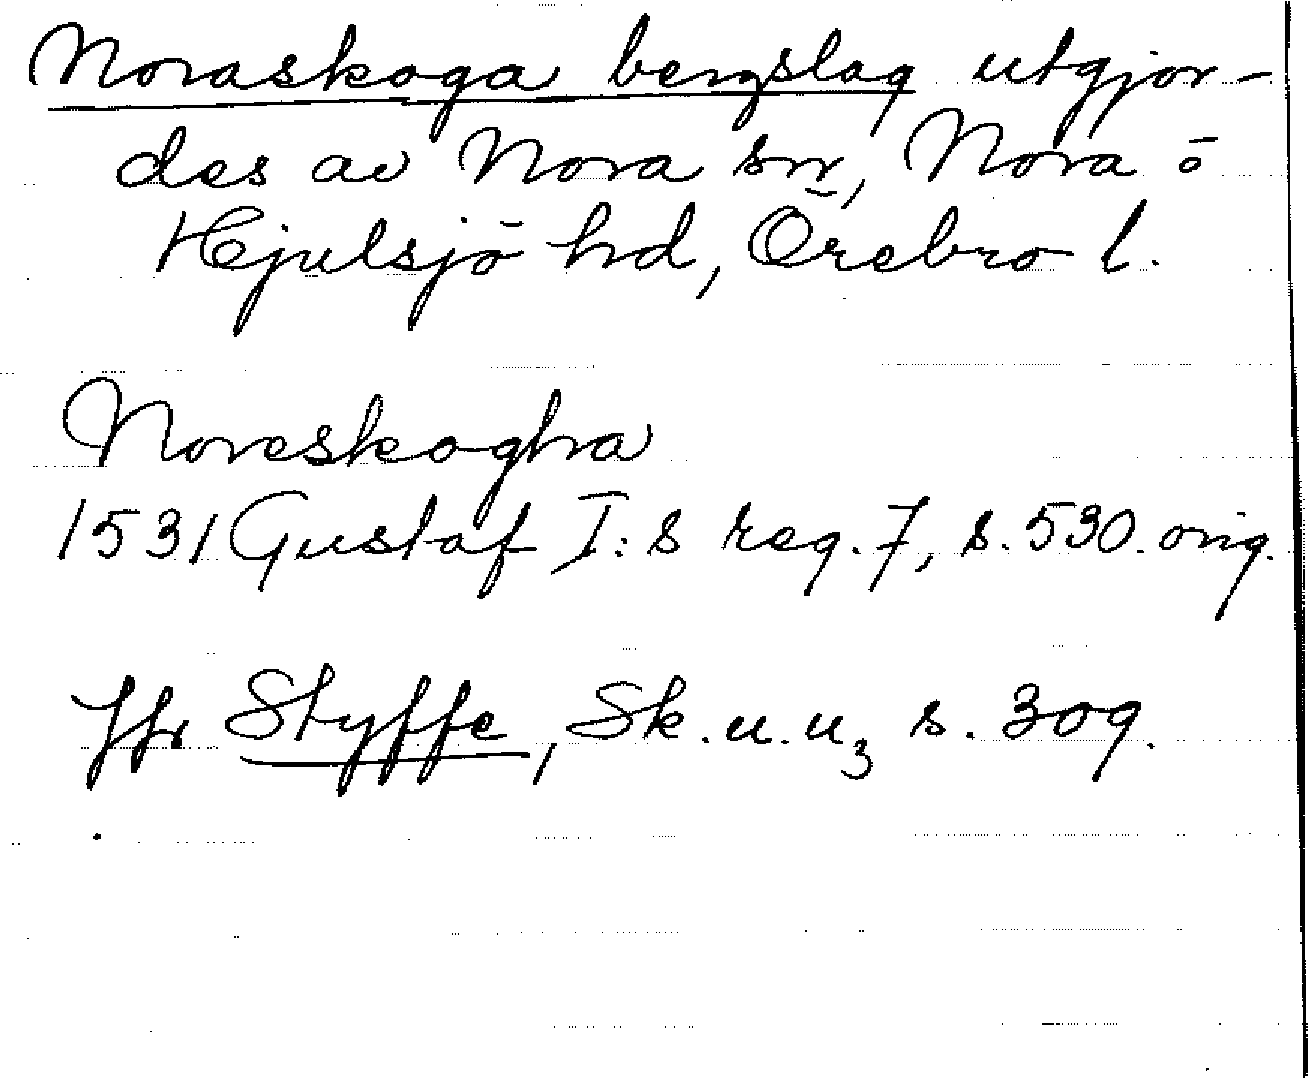 Noraskoga bergslag utgjor-
des av Nora sn, Nora o
Hjulsjö hd, Örebro l.
Noreskogha
1531 Gustaf I:s reg. 7, s. 530. orig.
Jfr Styffe, Sk.u.u₃ s. 309.